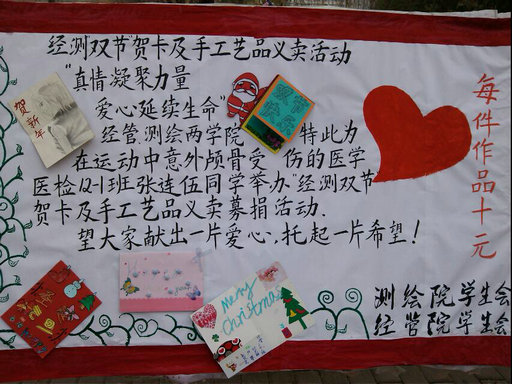 经测双节贺卡及手工艺品义卖活动
“真情凝聚力量
爱心延续生命”
经管测绘两学院 特此为
在运动中意外颅骨受 伤的医学
医检12-1班张连伍同学举办“经测双节
贺卡及手工艺品义卖募捐活动.
望大家献出一片爱心,托起一片希望!
每件作品十元
测绘院学生会
经管院学生会
贺新年
双节
快乐
Merry
Christmas